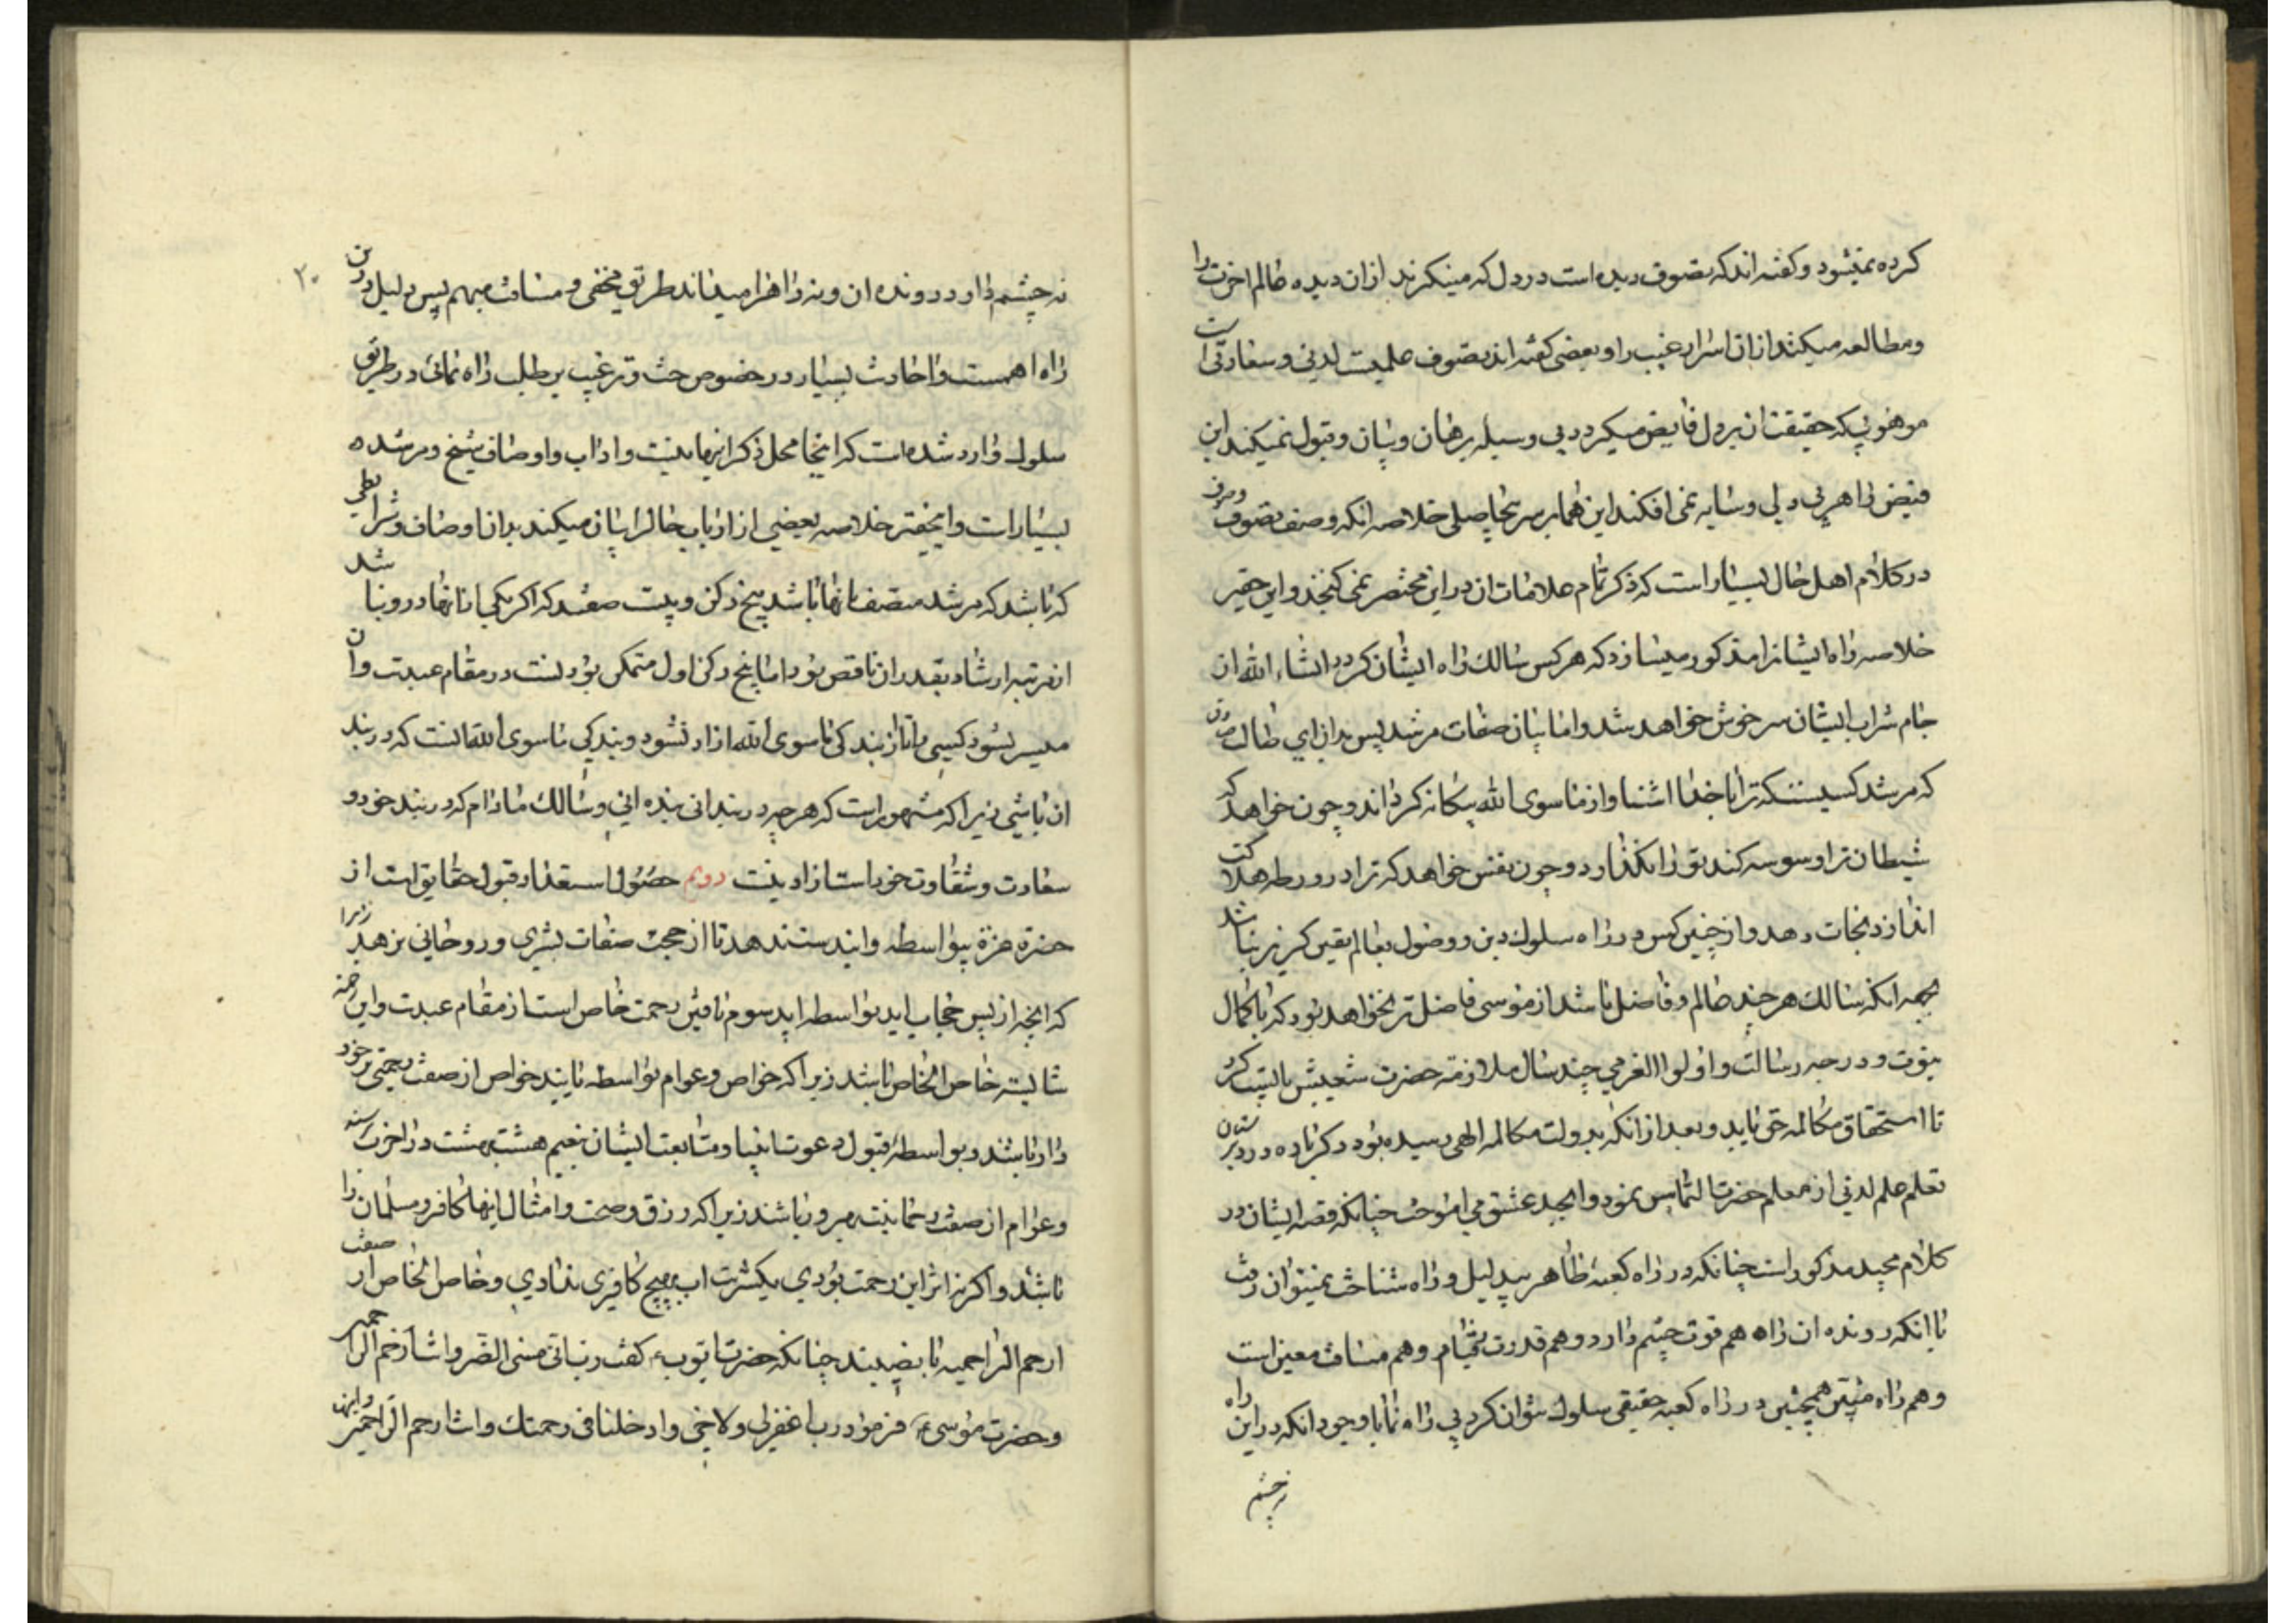 کرده نمیشود و کفته اند که تصوف دیده است در دل که مینکرند از ان دیده عالم اخرت را
و مطالعه میکنند از ان اسرار غیب را و بعضی کفته اند تصوف علمیست لدنی و سعادتی است
موهوبی که حقیقت ان بر دل فایض میکردد بی وسیله برهان و بیان و قبول نمیکند این
فیض را هر بی دلی و سایه نمی افکند این هما بر سر خلاصه انکه وصف تصوف و صوفی
در کلام اهل حال بسیار است که ذکر تمام علامات ان در این مختصر نمی کنجد و این حقیر
خلاصه راه ایشانرا مذکور میسازد که هر کس سالك راه ایشان کردد انشاء الله از
جام شراب ایشان سر خوش خواهد شد و اما بیان صفات مرشد پس بدان ای طالب
که مرشد کسیست که ترا با خدا اشنا و از ما سوی الله بیکانه کرداند و چون خواهد که
شیطان ترا وسوسه کند تو را نکذارد و چون نفس خواهد که ترا در ورطه هلاکت
اندازد نجات دهد و از چنین کس در راه سلوك دین و وصول بعالم یقین کریز نباشد
بجهه انکه سالك هر چند عالم و فاضل باشد از موسی فاضل تر نخواهد بود که با کمال
نبوت و درجه رسالت و اولوا العزمی چند سال ملازمة حضرت شعیبش بایست کرد
تا استحقاق مکالمه حق یابد و بعد از انکه بدولت مکالمه الهی رسیده بود دکر باره در دبیرستان
تعلم علم لدنی از معلم حضرت التماس نمود و ابجد عشق می اموخت چنانکه قصه ایشان در
کلام مجید مذکور است چنانکه در راه کعبهٔ ظاهر بیدلیل و راه شناس نمیتوان رفت
با انکه رونده ان راه هم قوت چشم دارد و هم قدرت قدم و هم مسافت معین است
و هم راه مبین همچنین در راه کعبه حقیقی سلوك نتوان کرد بی راه نما با وجود انکه در این راه
نه چشم
۲۰
نه چشم دارد رونده ان و نه راه را میداند طریق مخفی و مسافت مبهم پس دلیل در این
راه اهمست و احادیث بسیار در خصوص حث و ترغیب بر طلب راه نمائی در طریق
سلوك وارد شده است که اینجا محل ذکر اینها نیست و اداب و اوصاف شیخ و مرشد
بسیار است و اینحقیر خلاصه بعضی از ارباب حال را بیان میکند بدان اوصاف و شرایطی
که باشد که مرشد متصف بانها باشد پنج رکن و بیست صفتند که اکر یکی از انها در او نباشد
از مرتبه ارشاد بقدر ان ناقص بود اما پنج رکن اول متمکن بودنست در مقام عبدیت و ان
میسر نشود کسی را تا از بندکی ما سوی الله ازاد نشود و بندکی ما سوی الله انست که در بند
ان باشی زیرا که مشهور است که هر چه در بند انی بنده انی و سالك مادام که در بند خود و
سعادت و شقاوت خود است ازاد نیست دویم حصول استعداد قبول حقایق است از
حضرة عزة بیواسطه و این دست ندهد تا از حجب صفات بشری و روحانی نرهد زیرا
که انچه از پس حجاب اید بواسطه اید سوم یافتن رحمت خاص است از مقام عبدیت و این رحمة
شایسته خاص الخاص باشد زیرا که خواص و عوام بواسطه یابند خواص از صفت رحیمی بر خور
دار باشند و بواسطهٔ قبول دعوت انبیا و متابعت ایشان بنعیم هشت بهشت در اخرت رسند
و عوام از صفت رحمانیت بهره ور باشند زیرا که رزق و صحت و امثال اینها کافر و مسلمان را
باشد و اکر نه اثر این رحمت بودی یکشربت اب بهیچ کافری ندادی و خاص الخاص از صفت
ارحم الراحمین با نصیبند چنانکه حضرت ایوب ع کفت رب انی مسنی الضر و انت ارحم الراحمین
و حضرت موسی ع فرمود رب اغفرلی و لاخی و ادخلنا فی رحمتك و انت ارحم الراحمین و این